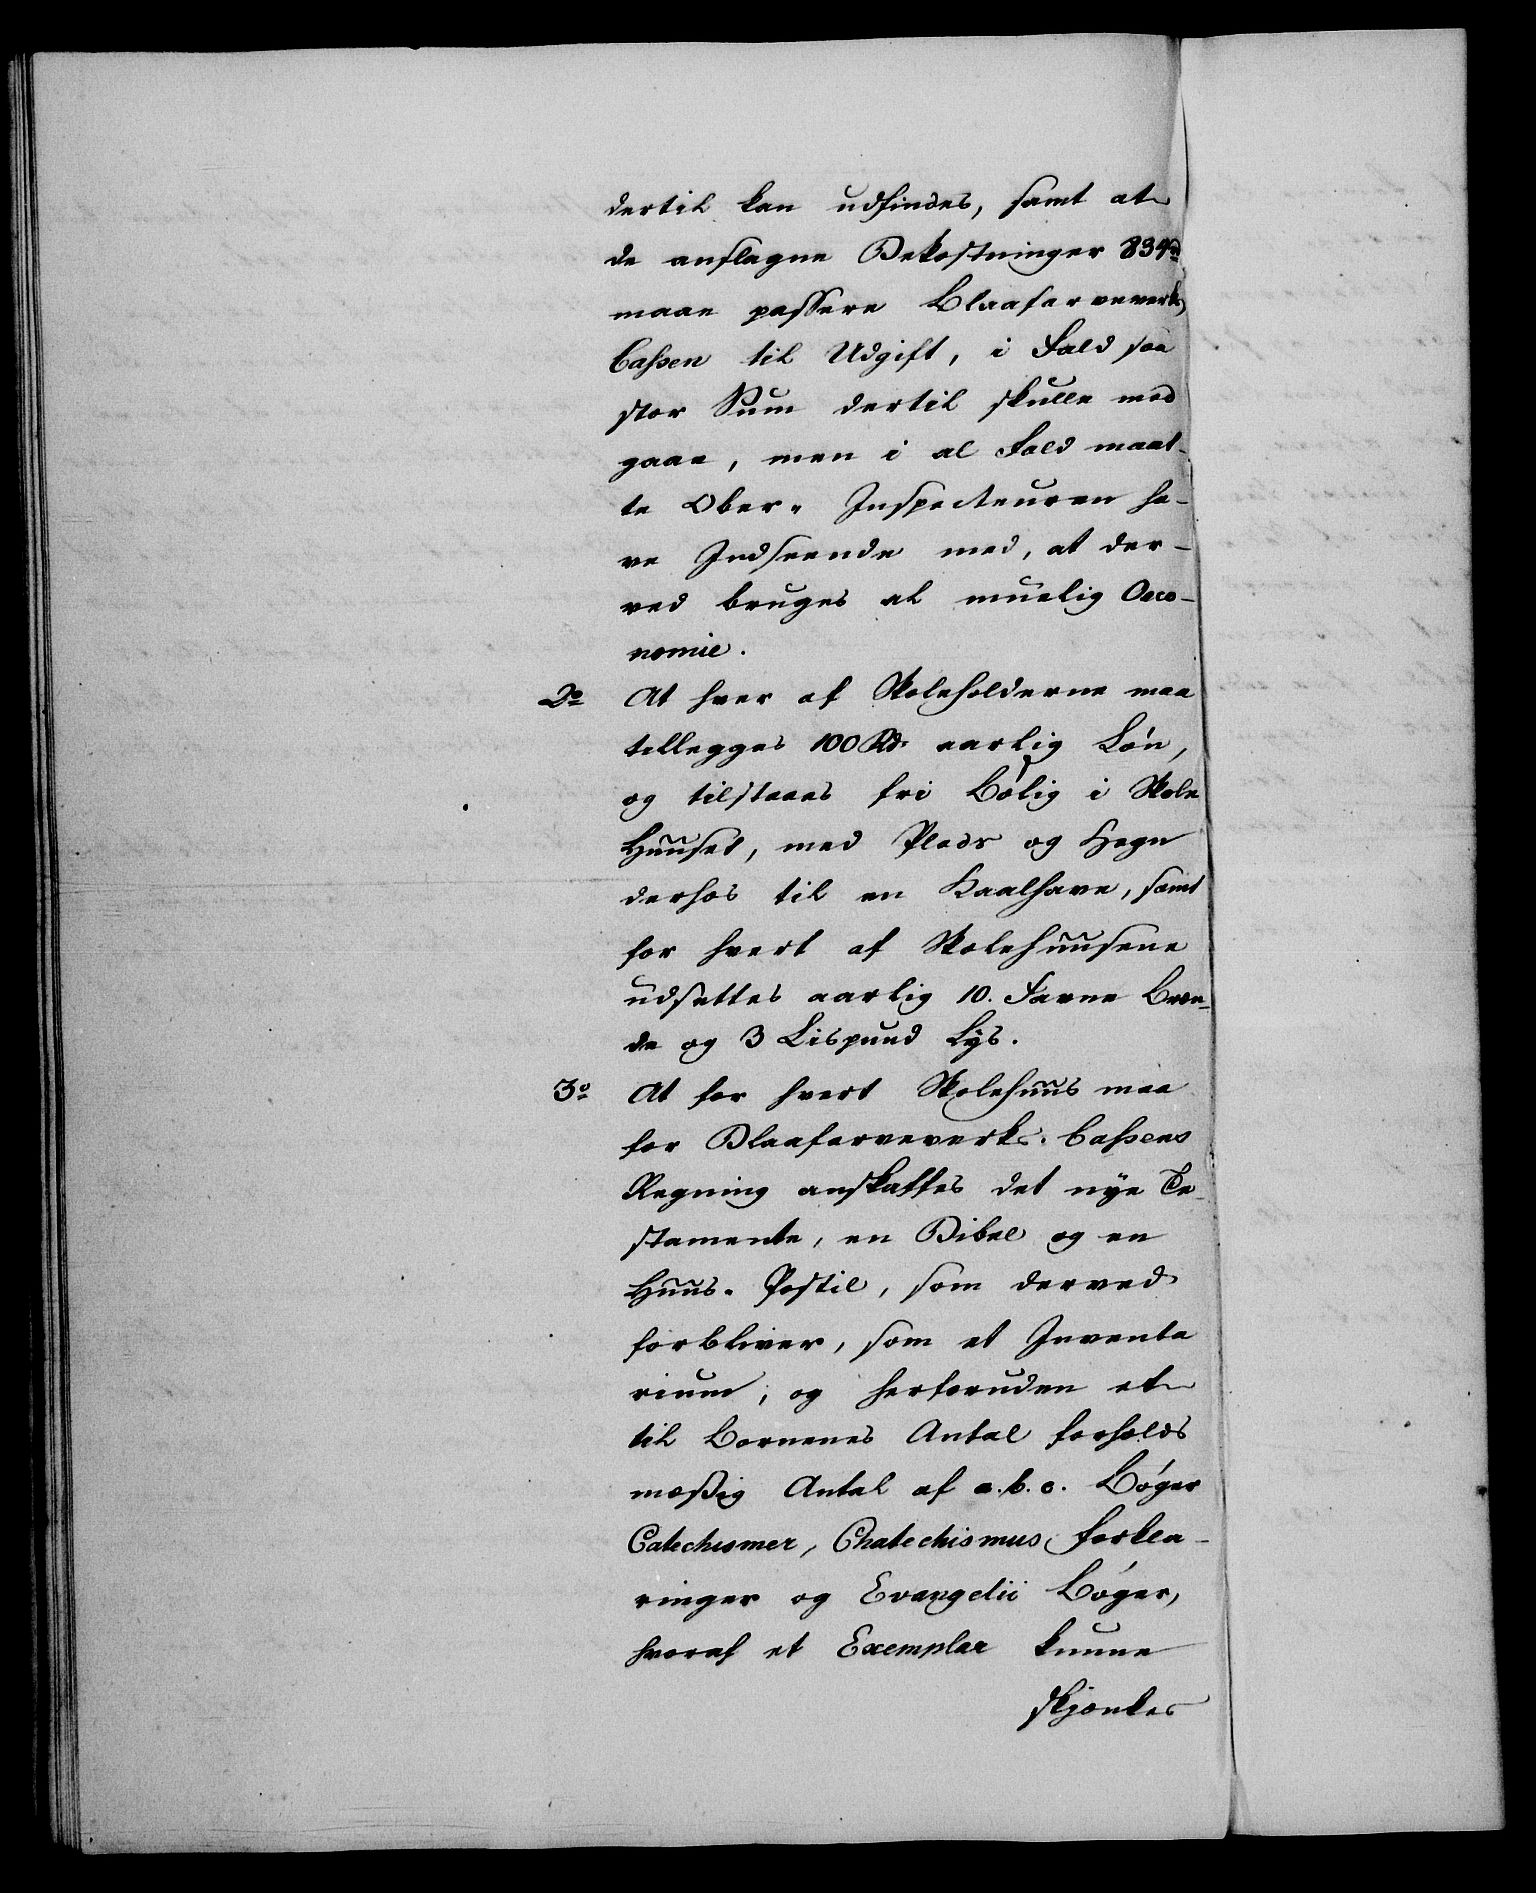 dertil kan udfindes, samt at
de anslagne Bekostninger 834 rd
maae passere Blaafarveverks
Cassen til Udgift, i Fald saa
stor Sum dertil skulle med
gaae, men i al Fald maat-
te Ober-Inspecteuren ha-
ve Indseende med, at der-
ved bruges al muelig Oeco-
nomie.
2o At hver af Skoleholderne maa
tillegges 100 Rdr aarlig Løn,
og tilstaaes fri Bolig i Skole
Huuset, med Plads og Hegn
derhos til en Kaalhave, samt
for hvert af Skolehuusene
udsettes aarlig 10. Favne Bræn-
de og 3 Lispund Lys.
3o At for hvert Skolehuus maa
for Blaafarveverks-Cassens
Regning anskaffes det nye Te-
stamente, en Bibel og en
Huus-Postil, som derved
forbliver, som et Inventa
rium; og herforuden et
til Børnenes Antal forholds
mæssig Antal af a.b.c. Bøger
Catechismer, Chatechismus Forkla-
ringer og Evangelii Bøger,
hvoraf et Exemplar kunne
skjænkes